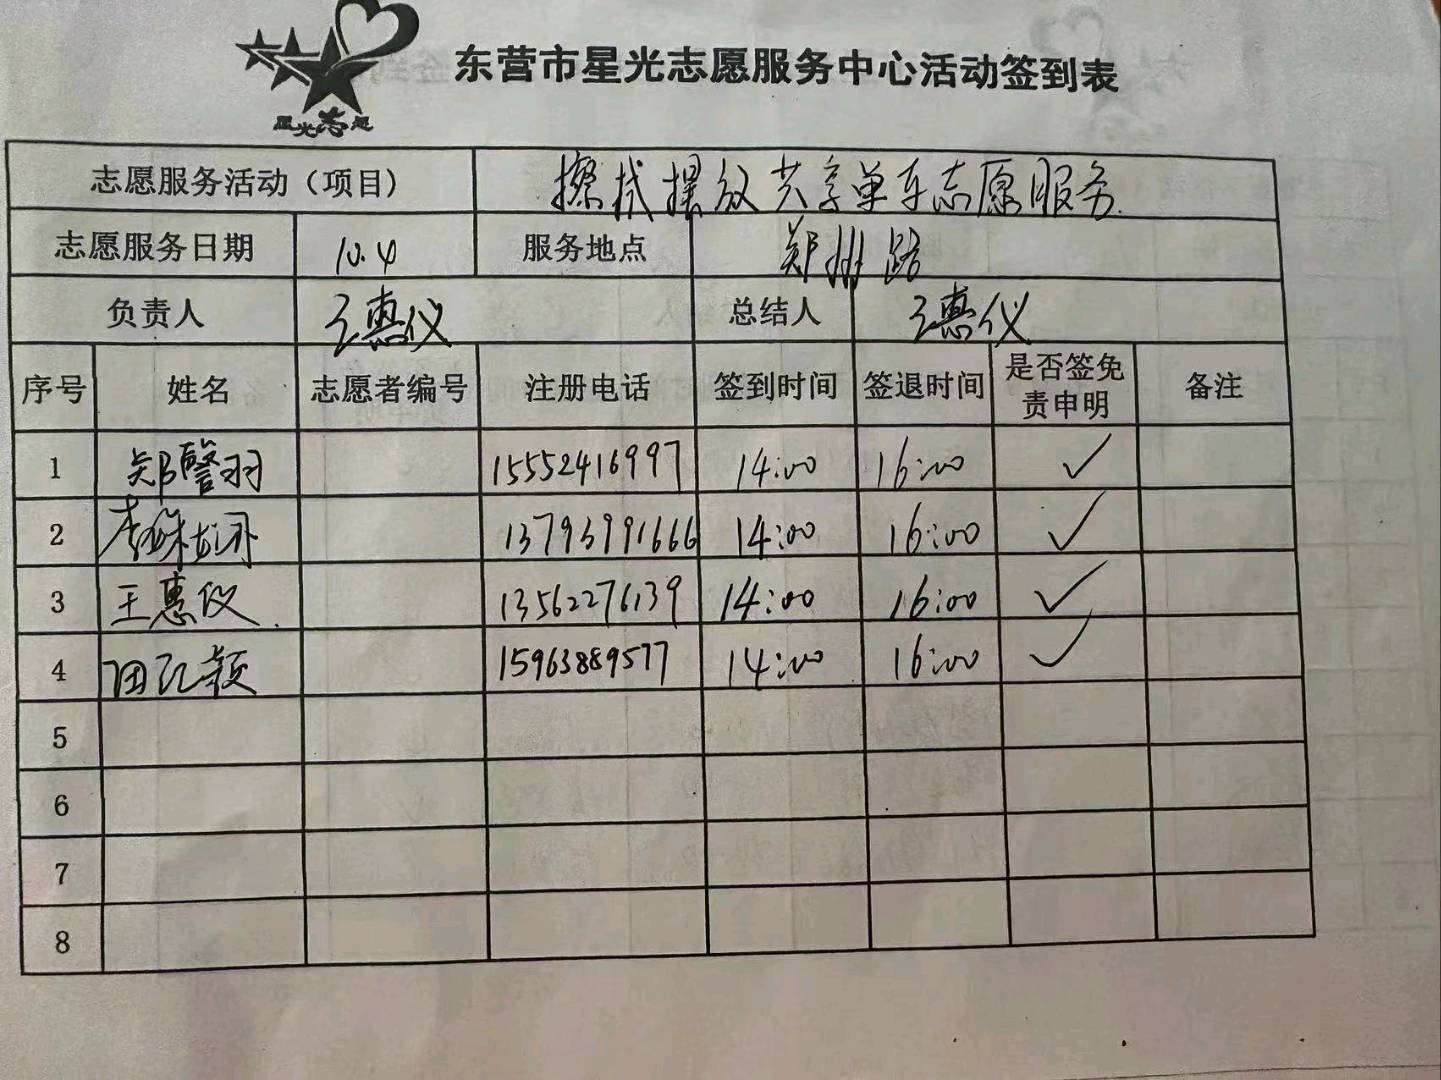 星光志愿
东营市星光志愿服务中心活动签到表
志愿服务活动（项目） 擦拭摆放共享单车志愿服务.
志愿服务日期 10.4 服务地点 郑州路
负责人 王惠仪 总结人 王惠仪
序号 姓名 志愿者编号 注册电话 签到时间 签退时间 是否签免责申明 备注
1 郑警羽 15552416997 14:00 16:00 ✓
2 李 13793991666 14:00 16:00 ✓
3 王惠仪. 13562276139 14:00 16:00 ✓
4 田 颖 15963889577 14:00 16:00 ✓
5
6
7
8